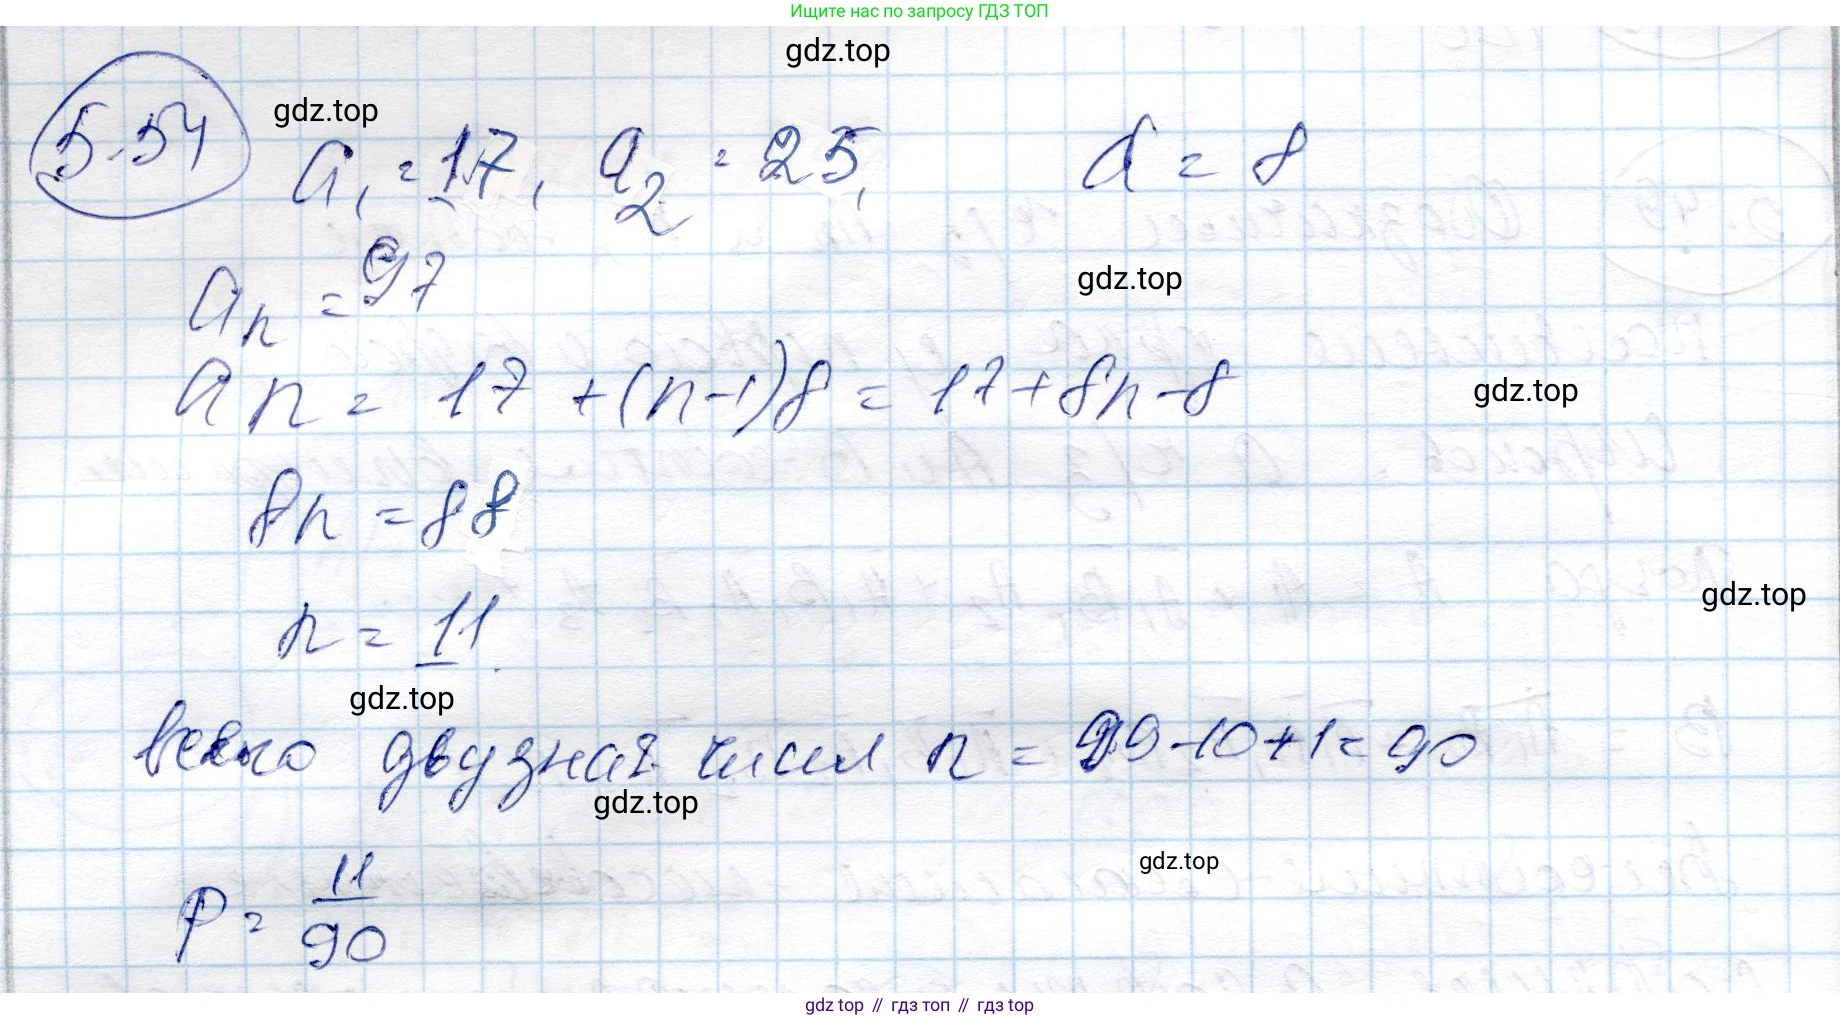 Ищите нас по запросу ГДЗ ТОП
gdz.top
5.54
gdz.top
a₁ = 17, a₂ = 25, d = 8
aₙ = 97
gdz.top
aₙ = 17 + (n-1)8 = 17 + 8n - 8
gdz.top
8n = 88
gdz.top
n = 11
gdz.top
всего двузнач. чисел n = 99 - 10 + 1 = 90
gdz.top
gdz.top
P = 11/90
gdz top // гдз топ // гдз top